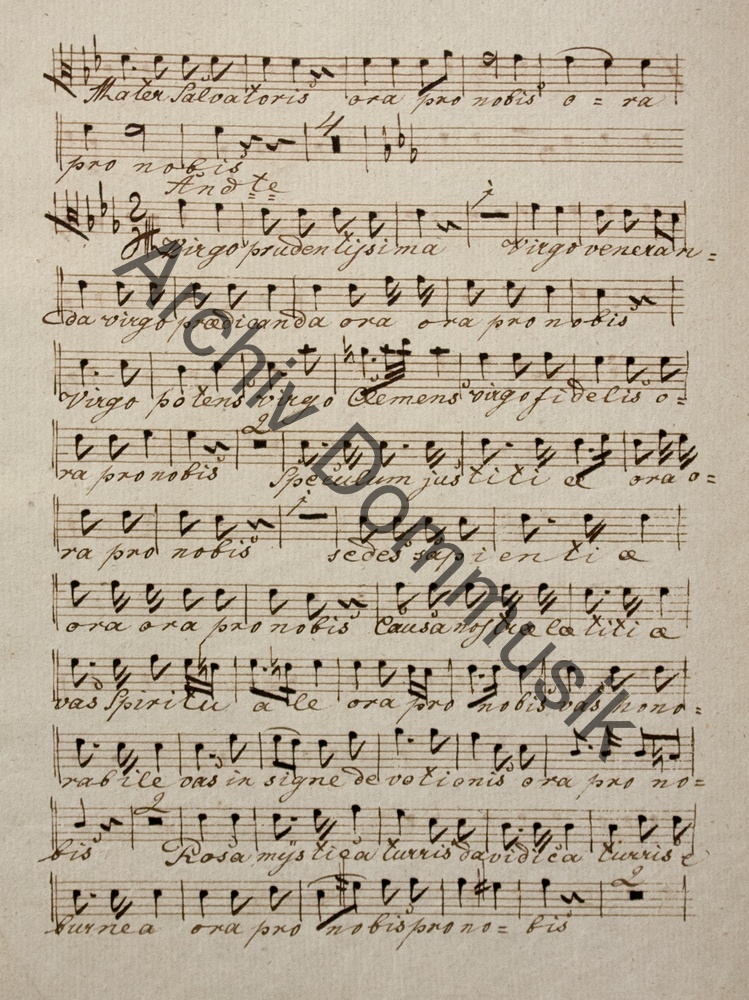 Mater Salvatoris ora pro nobis o = ra
4
pro nobis
And te
2
1
Virgo prudentissima Virgo veneran =
da virgo prædicanda ora ora pro nobis
Virgo potens virgo Clemens virgo fidelis o =
2
ra pro nobis Speculum justitiæ ora o =
1
ra pro nobis sedes sapientiæ
ora ora pro nobis Causa nostræ lætitiæ
vas Spirituale ora pro nobis vas hono-
rabile vas insigne devotionis ora pro no =
2
bis Rosa mÿstica turris davidica turris e
2
burnea ora pro nobis pro no = bis
Archiv Dommusik